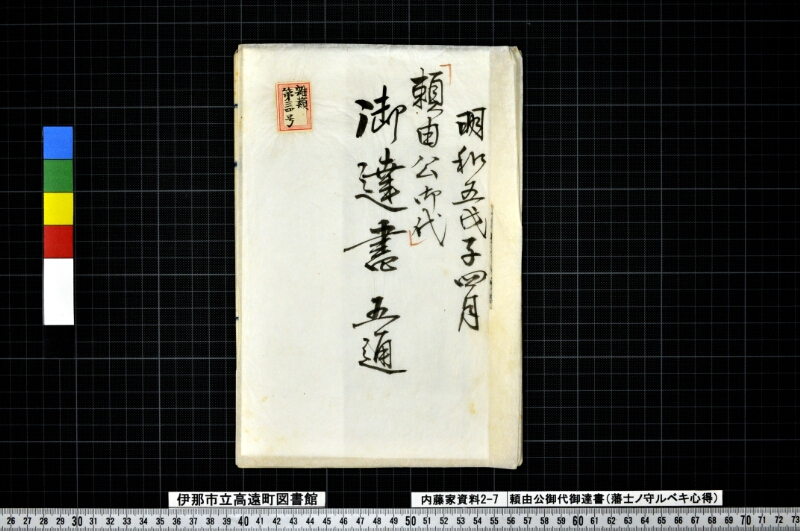 明和五戊子四月
「頼由公御代」
御達書 五通
雑類
第三号
伊那市立高遠町図書館
内藤家資料2-7 頼由公御代御達書(藩士ノ守ルベキ心得)
26 27 28 29 30 31 32 33 34 35 36 37 38 39 40 41 42 43 44 45 46 47 48 49 50 51 52 53 54 55 56 57 58 59 60 61 62 63 64 65 66 67 68 69 70 71 72 73